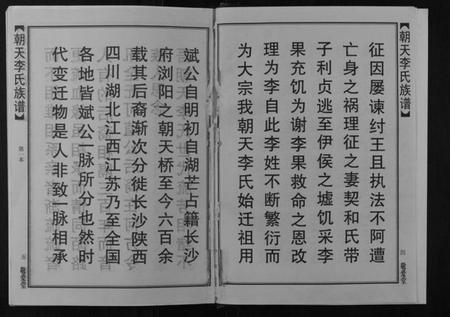 【朝天李氏族谱】
征因屡谏纣王且执法不阿遭
亡身之祸理征之妻契和氏带
子利贞逃至伊侯之墟饥采李
果充饥为谢李果救命之恩改
理为李自此李姓不断繁衍而
为大宗我朝天李氏始迁祖用
【朝天李氏族谱】
斌公自明初自湖芒占籍长沙
府浏阳之朝天桥至今六百余
载其后裔渐次分徙长沙陕西
四川湖北江西江苏乃至全国
各地皆斌公一脉所分也然时
代变迁物是人非致一脉相承
第一本
五